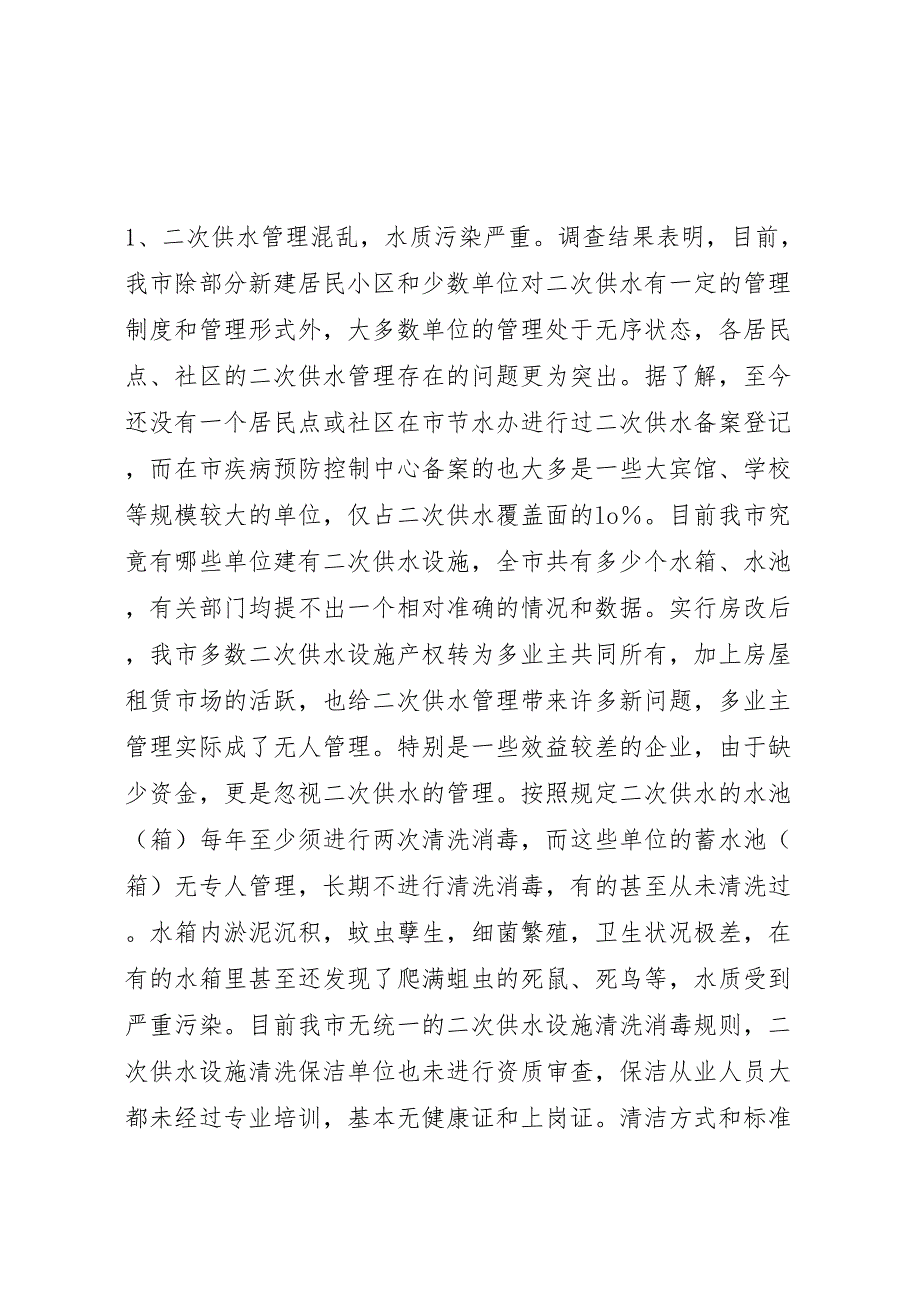 1、二次供水管理混乱，水质污染严重。调查结果表明，目前，
我市除部分新建居民小区和少数单位对二次供水有一定的管理
制度和管理形式外，大多数单位的管理处于无序状态，各居民
点、社区的二次供水管理存在的问题更为突出。据了解，至今
还没有一个居民点或社区在市节水办进行过二次供水备案登记
，而在市疾病预防控制中心备案的也大多是一些大宾馆、学校
等规模较大的单位，仅占二次供水覆盖面的lo％。目前我市究
竟有哪些单位建有二次供水设施，全市共有多少个水箱、水池
，有关部门均提不出一个相对准确的情况和数据。实行房改后
，我市多数二次供水设施产权转为多业主共同所有，加上房屋
租赁市场的活跃，也给二次供水管理带来许多新问题，多业主
管理实际成了无人管理。特别是一些效益较差的企业，由于缺
少资金，更是忽视二次供水的管理。按照规定二次供水的水池
（箱）每年至少须进行两次清洗消毒，而这些单位的蓄水池（
箱）无专人管理，长期不进行清洗消毒，有的甚至从未清洗过
。水箱内淤泥沉积，蚊虫孽生，细菌繁殖，卫生状况极差，在
有的水箱里甚至还发现了爬满蛆虫的死鼠、死鸟等，水质受到
严重污染。目前我市无统一的二次供水设施清洗消毒规则，二
次供水设施清洗保洁单位也未进行资质审查，保洁从业人员大
都未经过专业培训，基本无健康证和上岗证。清洁方式和标准